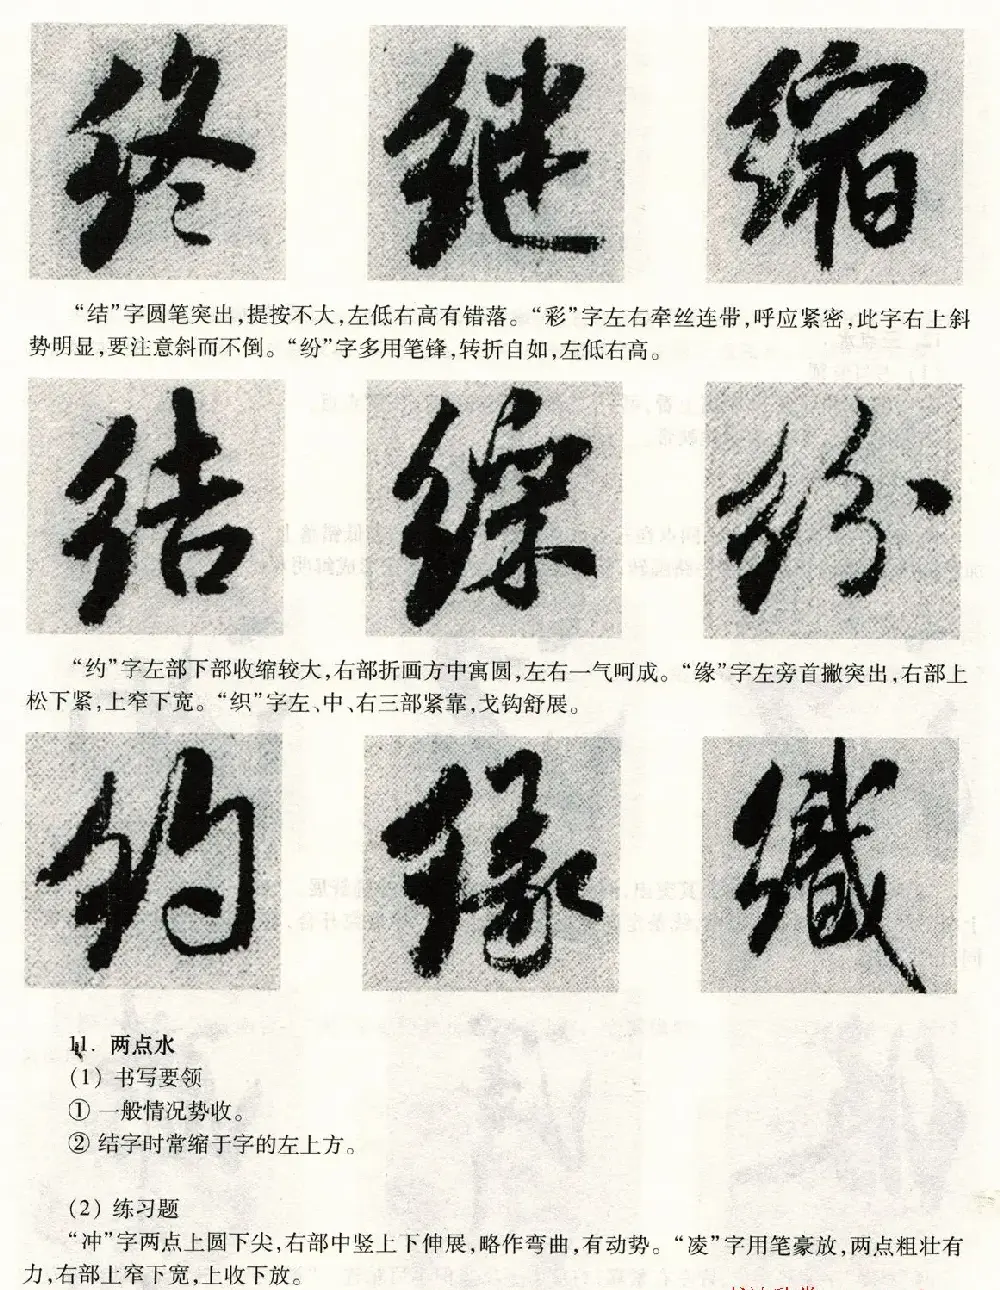 终 继 缩
“结”字圆笔突出,提按不大,左低右高有错落。“彩”字左右牵丝连带,呼应紧密,此字右上斜
势明显,要注意斜而不倒。“纷”字多用笔锋,转折自如,左低右高。
结 纷
“约”字左部下部收缩较大,右部折画方中寓圆,左右一气呵成。“缘”字左旁首撇突出,右部上
松下紧,上窄下宽。“织”字左、中、右三部紧靠,戈钩舒展。
约 缘 織
11. 两点水
(1) 书写要领
① 一般情况势收。
② 结字时常缩于字的左上方。
(2) 练习题
“冲”字两点上圆下尖,右部中竖上下伸展,略作弯曲,有动势。“凌”字用笔豪放,两点粗壮有
力,右部上窄下宽,上收下放。